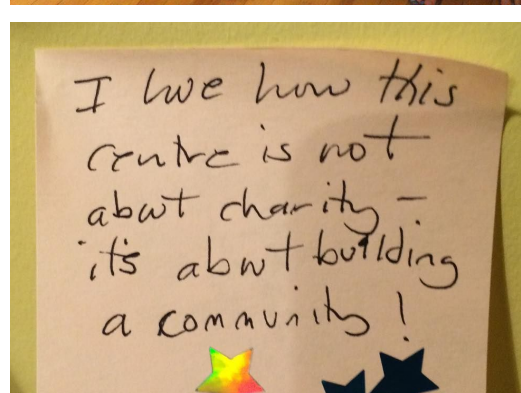 I love how this
centre is not
about charity –
it's about building
a community!